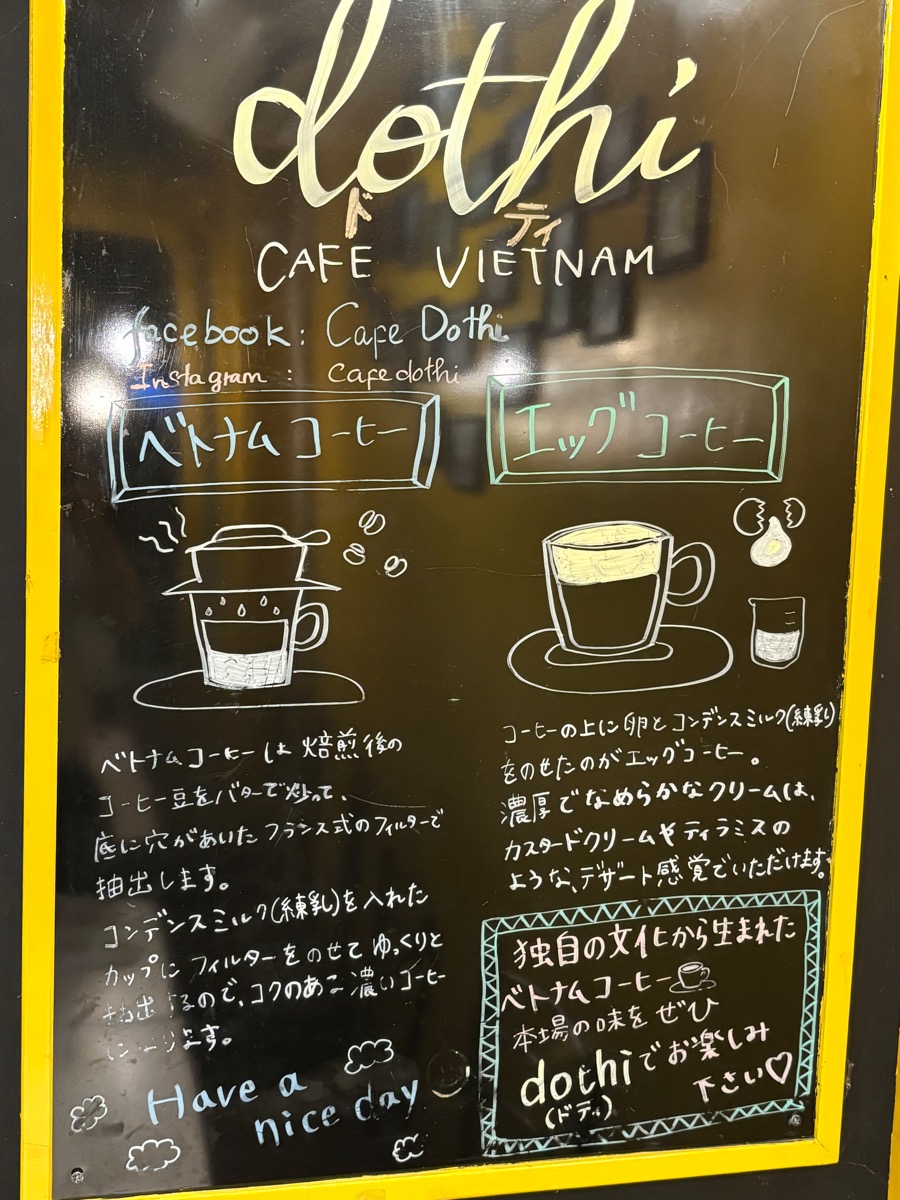 dothi
ドティ
CAFE VIETNAM
facebook: Cafe Dothi
Instagram: Cafedothi
ベトナムコーヒー
ベトナムコーヒーは焙煎後の
コーヒー豆をバターで炒って、
底に穴があいたフランス式のフィルターで
抽出します。
コンデンスミルク(練乳)を入れた
カップにフィルターをのせてゆっくりと
抽出するので、コクのある濃いコーヒー
になります。
Have a
nice day
エッグコーヒー
コーヒーの上に卵とコンデンスミルク(練乳)
をのせたのがエッグコーヒー。
濃厚でなめらかなクリームは、
カスタードクリームやティラミスの
ような、デザート感覚でいただけます。
独自の文化から生まれた
ベトナムコーヒー
本場の味をぜひ
dothiでお楽しみ
(ドティ)
下さい♡